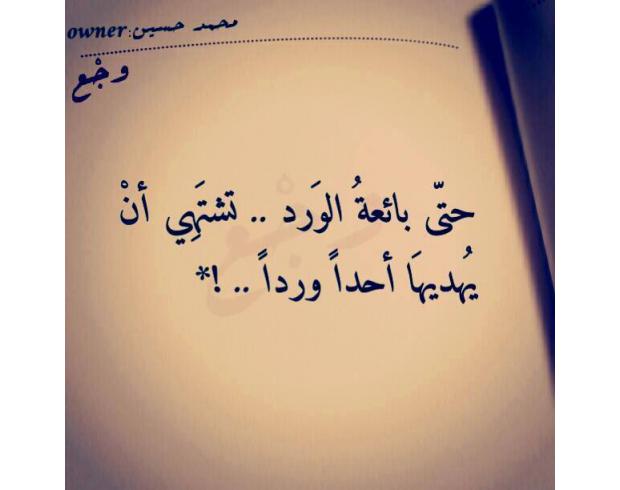 محمد حسين:owner
وجْع
حتّى بائعةُ الوَرد .. تشتَهِي أنْ
يُهديهَا أحداً ورداً .. !*
وجْع